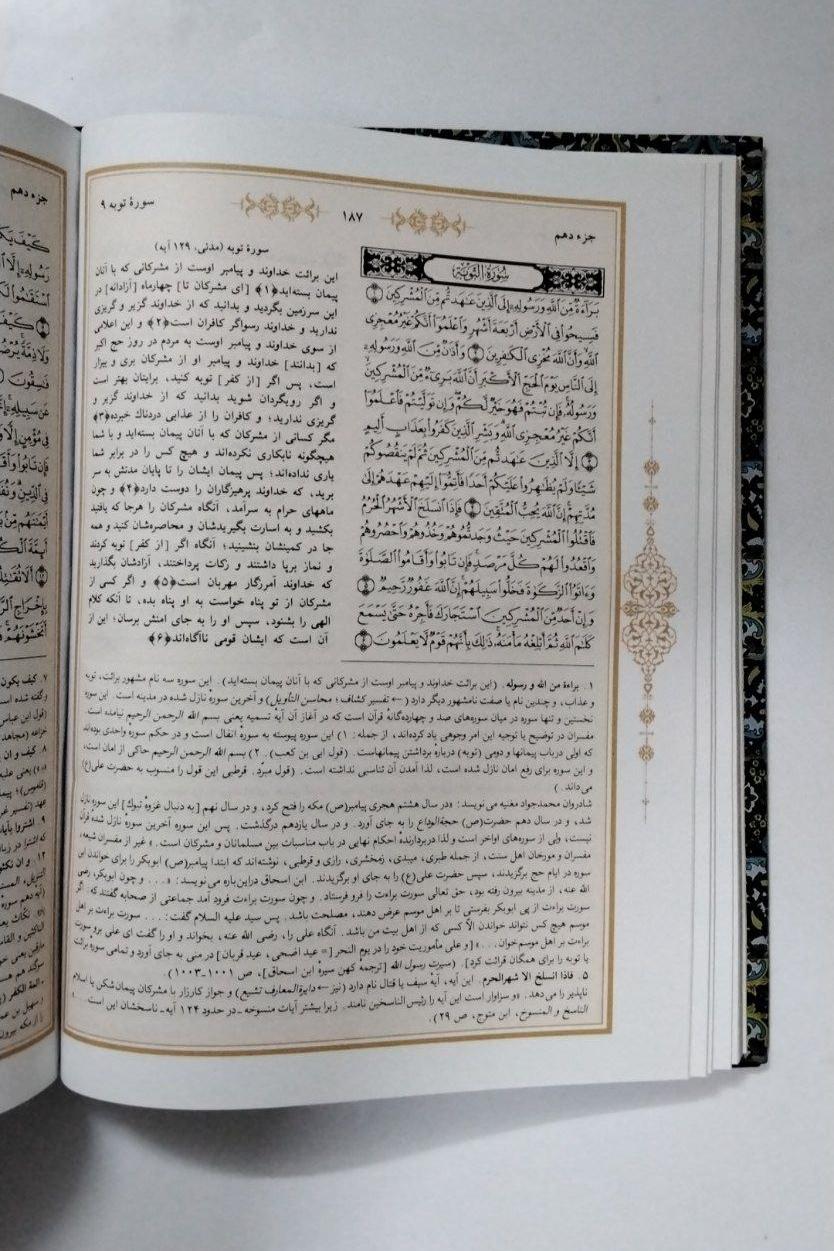 جزء دهم
۱۸۷
سورهٔ توبه ۹
سُورَةُ التَّوْبَةِ
بَرَآءَةٌ مِّنَ ٱللَّهِ وَرَسُولِهِۦٓ إِلَى ٱلَّذِينَ عَٰهَدتُّم مِّنَ ٱلْمُشْرِكِينَ ۝١
فَسِيحُوا۟ فِى ٱلْأَرْضِ أَرْبَعَةَ أَشْهُرٍ وَٱعْلَمُوٓا۟ أَنَّكُمْ غَيْرُ مُعْجِزِى
ٱللَّهِ وَأَنَّ ٱللَّهَ مُخْزِى ٱلْكَٰفِرِينَ ۝٢ وَأَذَٰنٌ مِّنَ ٱللَّهِ وَرَسُولِهِۦٓ
إِلَى ٱلنَّاسِ يَوْمَ ٱلْحَجِّ ٱلْأَكْبَرِ أَنَّ ٱللَّهَ بَرِىٓءٌ مِّنَ ٱلْمُشْرِكِينَ
وَرَسُولُهُۥ فَإِن تُبْتُمْ فَهُوَ خَيْرٌ لَّكُمْ وَإِن تَوَلَّيْتُمْ فَٱعْلَمُوٓا۟
أَنَّكُمْ غَيْرُ مُعْجِزِى ٱللَّهِ وَبَشِّرِ ٱلَّذِينَ كَفَرُوا۟ بِعَذَابٍ أَلِيمٍ
۝٣ إِلَّا ٱلَّذِينَ عَٰهَدتُّم مِّنَ ٱلْمُشْرِكِينَ ثُمَّ لَمْ يَنقُصُوكُمْ
شَيْـًٔا وَلَمْ يُظَٰهِرُوا۟ عَلَيْكُمْ أَحَدًا فَأَتِمُّوٓا۟ إِلَيْهِمْ عَهْدَهُمْ إِلَىٰ
مُدَّتِهِمْ إِنَّ ٱللَّهَ يُحِبُّ ٱلْمُتَّقِينَ ۝٤ فَإِذَا ٱنسَلَخَ ٱلْأَشْهُرُ ٱلْحُرُمُ
فَٱقْتُلُوا۟ ٱلْمُشْرِكِينَ حَيْثُ وَجَدتُّمُوهُمْ وَخُذُوهُمْ وَٱحْصُرُوهُمْ
وَٱقْعُدُوا۟ لَهُمْ كُلَّ مَرْصَدٍ فَإِن تَابُوا۟ وَأَقَامُوا۟ ٱلصَّلَوٰةَ
وَءَاتَوُا۟ ٱلزَّكَوٰةَ فَخَلُّوا۟ سَبِيلَهُمْ إِنَّ ٱللَّهَ غَفُورٌ رَّحِيمٌ ۝٥
وَإِنْ أَحَدٌ مِّنَ ٱلْمُشْرِكِينَ ٱسْتَجَارَكَ فَأَجِرْهُ حَتَّىٰ يَسْمَعَ
كَلَٰمَ ٱللَّهِ ثُمَّ أَبْلِغْهُ مَأْمَنَهُۥ ذَٰلِكَ بِأَنَّهُمْ قَوْمٌ لَّا يَعْلَمُونَ ۝٦
سورهٔ توبه (مدنی، ۱۲۹ آیه)
این برائت خداوند و پیامبر اوست از مشرکانی که با آنان
پیمان بسته‌اید﴿۱﴾ [ای مشرکان تا] چهارماه [آزادانه] در
این سرزمین بگردید و بدانید که از خداوند گزیر و گریزی
ندارید و خداوند رسواگر کافران است﴿۲﴾ و این اعلامی
از سوی خداوند و پیامبر اوست به مردم در روز حج اکبر
که [بدانند] خداوند و پیامبر او از مشرکان بری و بیزار
است، پس اگر [از کفر] توبه کنید، برایتان بهتر است
و اگر رویگردان شوید بدانید که از خداوند گزیر و
گریزی ندارید؛ و کافران را از عذابی دردناک خبرده﴿۳﴾
مگر کسانی از مشرکان که با آنان پیمان بسته‌اید و با شما
هیچگونه نابکاری نکرده‌اند و هیچ کس را در برابر شما
یاری نداده‌اند؛ پس پیمان ایشان را تا پایان مدتش به سر
برید، که خداوند پرهیزگاران را دوست دارد﴿۴﴾ و چون
ماههای حرام به سرآمد، آنگاه مشرکان را هرجا که یافتید
بکشید و به اسارت بگیریدشان و محاصره‌شان کنید و همه
جا در کمینشان بنشینید؛ آنگاه اگر [از کفر] توبه کردند
و نماز برپا داشتند و زکات پرداختند، آزادشان بگذارید
که خداوند آمرزگار مهربان است﴿۵﴾ و اگر کسی از
مشرکان از تو پناه خواست به او پناه بده، تا آنکه کلام
الهی را بشنود، سپس او را به جای امنش برسان؛ این از
آن است که ایشان قومی ناآگاه‌اند﴿۶﴾
۱. براءة من الله و رسوله. (این برائت خداوند و پیامبر اوست از مشرکانی که با آنان پیمان بسته‌اید). این سوره سه نام مشهور برائت، توبه
و عذاب، و چندین نام یا صفت نامشهور دیگر دارد (← تفسیر کشاف؛ محاسن التأویل) و آخرین سورهٔ نازل شده در مدینه است. این سوره
نخستین و تنها سوره در میان سوره‌های صد و چهارده‌گانهٔ قرآن است که در آغاز آن آیهٔ تسمیه یعنی بسم الله الرحمن الرحیم نیامده است.
مفسران در توضیح یا توجیه این امر وجوهی یاد کرده‌اند، از جمله: ۱) این سوره پیوسته به سورهٔ انفال است و در حکم سوره واحدی بوده‌اند
که اولی درباب پیمانها و دومی (توبه) درباره برداشتن پیمانهاست. (قول ابی بن کعب). ۲) بسم الله الرحمن الرحیم حاکی از امان است،
و این سوره برای رفع امان نازل شده است، لذا آمدن آن تناسبی نداشته است. (قول مبرّد. قرطبی این قول را منسوب به حضرت علی(ع)
می‌داند.)
شادروان محمدجواد مغنیه می‌نویسد: «در سال هشتم هجری پیامبر(ص) مکه را فتح کرد، و در سال نهم [به دنبال غزوهٔ تبوک] این سوره نازل
شد، و در سال دهم حضرت(ص) حجةالوداع را به جای آورد. و در سال یازدهم درگذشت. پس این سوره آخرین سورهٔ نازل شدهٔ قرآن
نیست، ولی از سوره‌های اواخر است و لذا دربردارندهٔ احکام نهایی در باب مناسبات بین مسلمانان و مشرکان است.» غیر از مفسران شیعه،
مفسران و مورخان اهل سنت، از جمله طبری، میبدی، زمخشری، رازی و قرطبی، نوشته‌اند که ابتدا پیامبر(ص) ابوبکر را برای خواندن این
سوره در ایام حج برگزیدند، سپس حضرت علی(ع) را به جای او برگزیدند. ابن اسحاق دراین‌باره می‌نویسد: «... و چون ابوبکر، رضی
الله عنه، از مدینه بیرون رفته بود، حق تعالی سورت براءت را فرو فرستاد. و چون سورت براءت فرود آمد جماعتی از صحابه گفتند که: اگر
سورت براءت از پی ابوبکر بفرستی تا بر اهل موسم عرض دهند، مصلحت باشد. پس سید علیه السلام گفت: ... سورت براءت بر اهل
موسم هیچ کس نتواند خواندن الّا کسی که از اهل بیت من باشد. آنگاه علی را، رضی الله عنه، بخواند و او را گفت ای علی برو سورت
براءت بر اهل موسم‌خوان...» [و علی مأموریت خود را در یوم النحر [= عید اضحی، عید قربان] در منی به جای آورد و تمامی سورهٔ برائت
یا توبه را برای همگان قرائت کرد]. (سیرت رسول الله [ترجمه کهن سیرهٔ ابن اسحاق]، ص ۱۰۰۱-۱۰۰۳)
۵. فاذا انسلخ الا شهرالحرم. این آیه، آیهٔ سیف یا قتال نام دارد (نیز ← دایرةالمعارف تشیع) و جواز کارزار با مشرکان پیمان‌شکن یا اسلام
ناپذیر را می‌دهد. «و سزاوار است این آیه را رئیس الناسخین نامند. زیرا بیشتر آیات منسوخه ـ در حدود ۱۲۴ آیه ـ ناسخشان این است.»
الناسخ و المنسوخ، ابن متوج، ص ۲۹).
جزء دهم